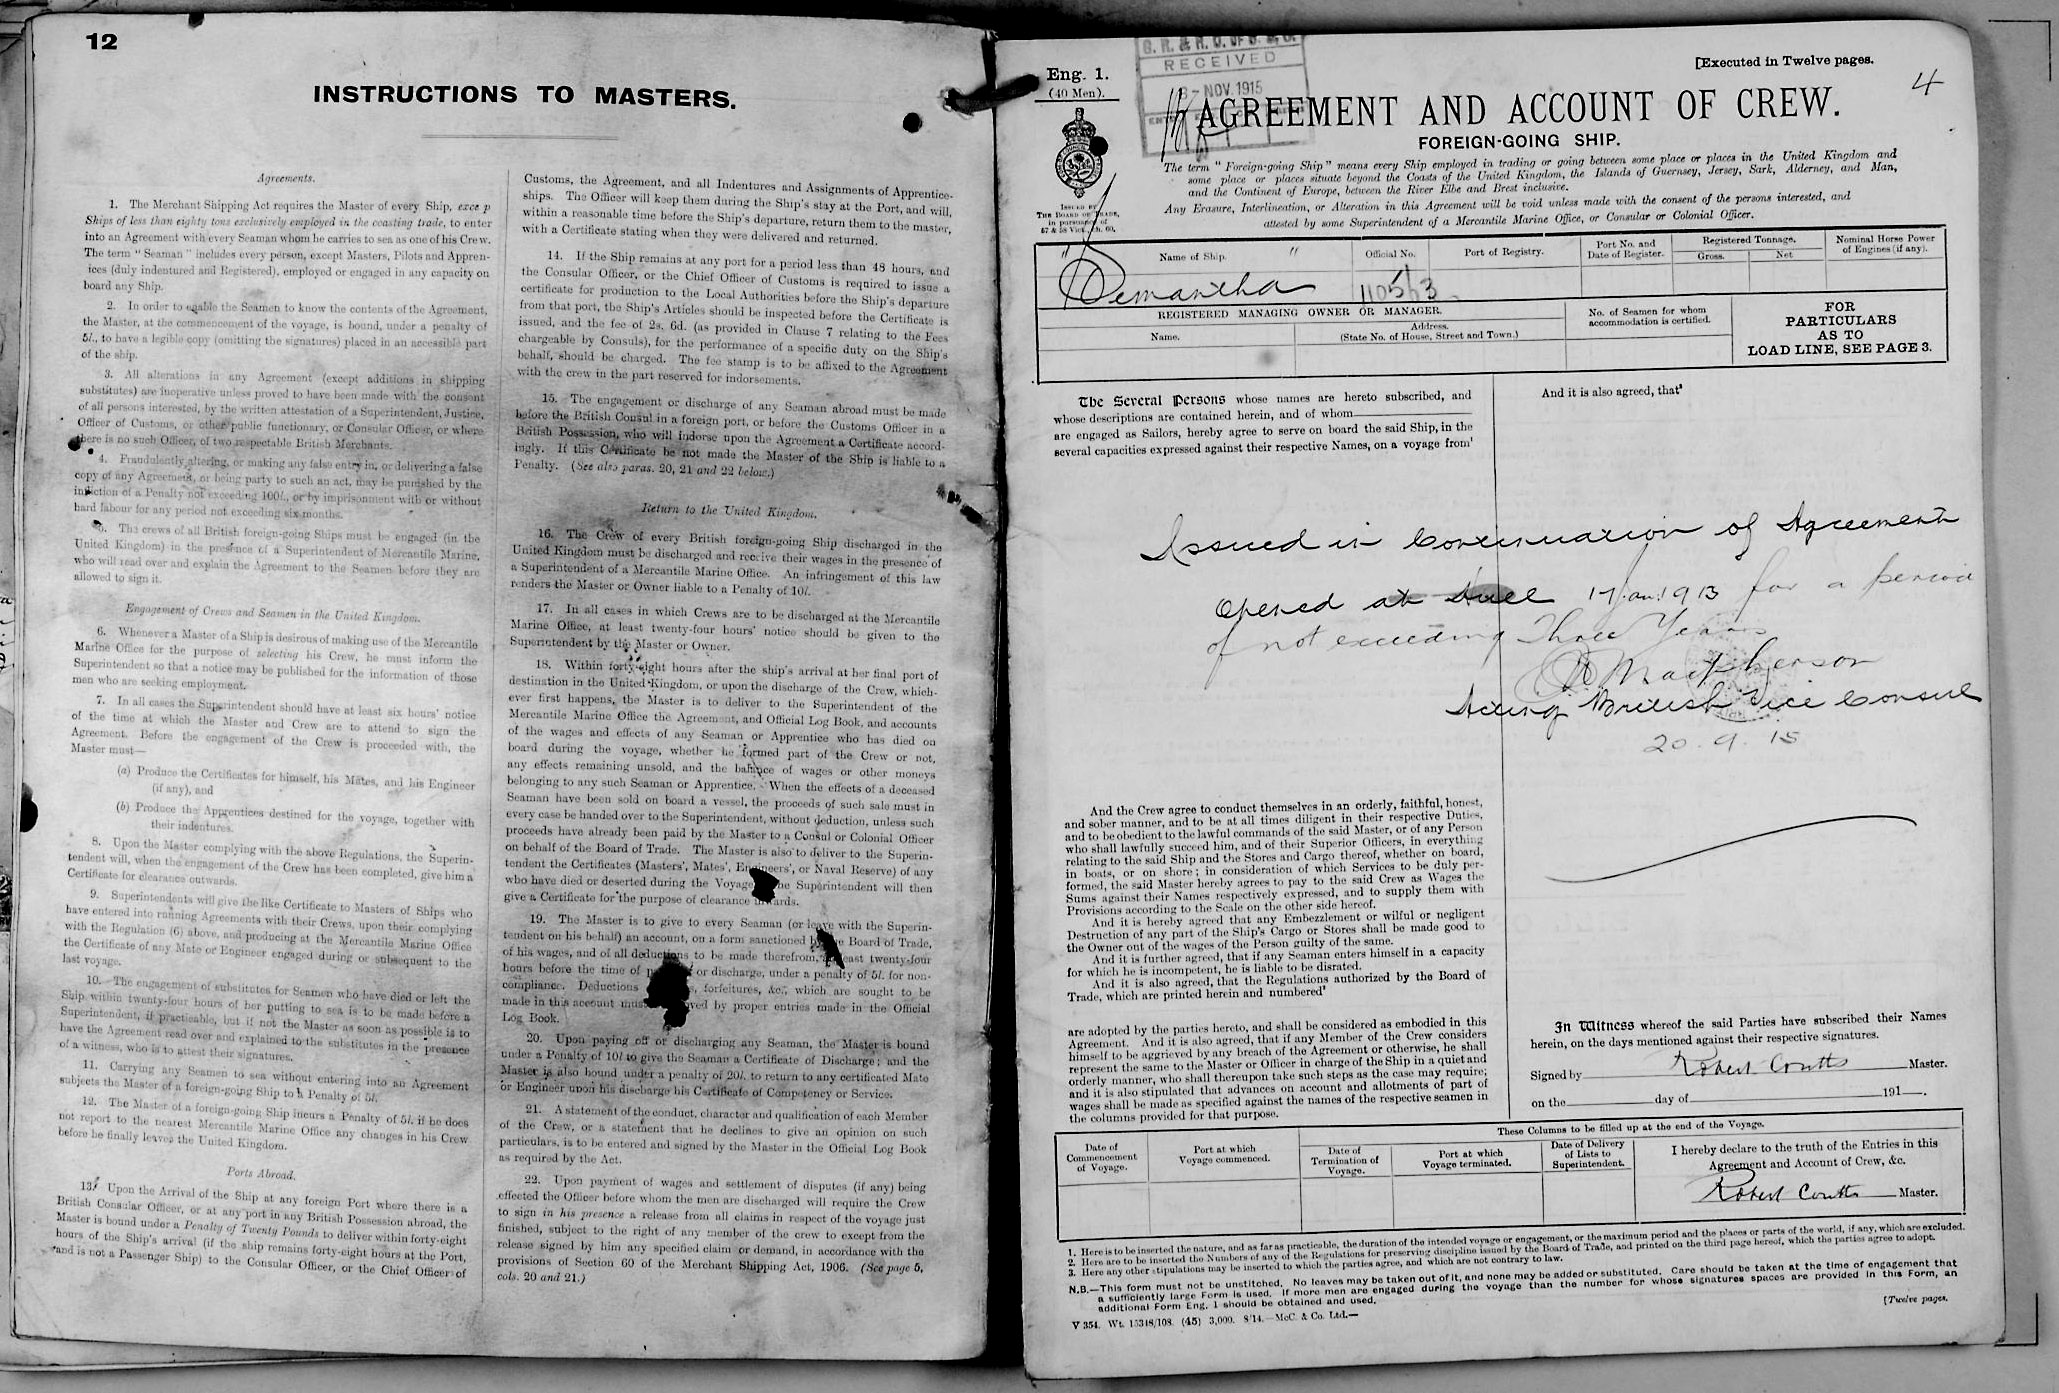 12
INSTRUCTIONS TO MASTERS.
Agreements.
1. The Merchant Shipping Act requires the Master of every Ship, exce p
Ships of less than eighty tons exclusively employed in the coasting trade, to enter
into an Agreement with every Seaman whom he carries to sea as one of his Crew.
The term “Seaman” includes every person, except Masters, Pilots and Appren-
ices (duly indentured and Registered), employed or engaged in any capacity on
board any Ship.
2. In order to enable the Seamen to know the contents of the Agreement,
the Master, at the commencement of the voyage, is bound, under a penalty of
5l., to have a legible copy (omitting the signatures) placed in an accessible part
of the ship.
3. All alterations in any Agreement (except additions in shipping
substitutes) are inoperative unless proved to have been made with the consent
of all persons interested, by the written attestation of a Superintendent, Justice,
Officer of Customs, or other public functionary, or Consular Officer, or where
there is no such Officer, of two respectable British Merchants.
4. Fraudulently altering, or making any false entry in, or delivering a false
copy of any Agreement, or being party to such an act, may be punished by the
infliction of a Penalty not exceeding 100l., or by imprisonment with or without
hard labour for any period not exceeding six months.
5. The crews of all British foreign-going Ships must be engaged (in the
United Kingdom) in the presence of a Superintendent of Mercantile Marine,
who will read over and explain the Agreement to the Seamen before they are
allowed to sign it.
Engagement of Crews and Seamen in the United Kingdom.
6. Whenever a Master of a Ship is desirous of making use of the Mercantile
Marine Office for the purpose of selecting his Crew, he must inform the
Superintendent so that a notice may be published for the information of those
men who are seeking employment.
7. In all cases the Superintendent should have at least six hours' notice
of the time at which the Master and Crew are to attend to sign the
Agreement. Before the engagement of the Crew is proceeded with, the
Master must—
(a) Produce the Certificates for himself, his Mates, and his Engineer
(if any), and
(b) Produce the Apprentices destined for the voyage, together with
their indentures.
8. Upon the Master complying with the above Regulations, the Superin-
tendent will, when the engagement of the Crew has been completed, give him a
Certificate for clearance outwards.
9. Superintendents will give the like Certificate to Masters of Ships who
have entered into running Agreements with their Crews, upon their complying
with the Regulation (6) above, and producing at the Mercantile Marine Office
the Certificate of any Mate or Engineer engaged during or subsequent to the
last voyage.
10. The engagement of substitutes for Seamen who have died or left the
Ship within twenty-four hours of her putting to sea is to be made before a
Superintendent, if practicable, but if not the Master as soon as possible is to
have the Agreement read over and explained to the substitutes in the presence
of a witness, who is to attest their signatures.
11. Carrying any Seamen to sea without entering into an Agreement
subjects the Master of a foreign-going Ship to a Penalty of 5l.
12. The Master of a foreign-going Ship incurs a Penalty of 5l. if he does
not report to the nearest Mercantile Marine Office any changes in his Crew
before he finally leaves the United Kingdom.
Ports Abroad.
13. Upon the Arrival of the Ship at any foreign Port where there is a
British Consular Officer, or at any port in any British Possession abroad, the
Master is bound under a Penalty of Twenty Pounds to deliver within forty-eight
hours of the Ship's arrival (if the ship remains forty-eight hours at the Port,
and is not a Passenger Ship) to the Consular Officer, or the Chief Officer of
Customs, the Agreement, and all Indentures and Assignments of Apprentice-
ships. The Officer will keep them during the Ship's stay at the Port, and will,
within a reasonable time before the Ship's departure, return them to the master,
with a Certificate stating when they were delivered and returned.
14. If the Ship remains at any port for a period less than 48 hours, and
the Consular Officer, or the Chief Officer of Customs is required to issue a
certificate for production to the Local Authorities before the Ship's departure
from that port, the Ship's Articles should be inspected before the Certificate is
issued, and the fee of 2s. 6d. (as provided in Clause 7 relating to the Fees
chargeable by Consuls), for the performance of a specific duty on the Ship's
behalf, should be charged. The fee stamp is to be affixed to the Agreement
with the crew in the part reserved for indorsements.
15. The engagement or discharge of any Seaman abroad must be made
before the British Consul in a foreign port, or before the Customs Officer in a
British Possession, who will indorse upon the Agreement a Certificate accord-
ingly. If this Certificate be not made the Master of the Ship is liable to a
Penalty. (See also paras. 20, 21 and 22 below.)
Return to the United Kingdom.
16. The Crew of every British foreign-going Ship discharged in the
United Kingdom must be discharged and receive their wages in the presence of
a Superintendent of a Mercantile Marine Office. An infringement of this law
renders the Master or Owner liable to a Penalty of 10l.
17. In all cases in which Crews are to be discharged at the Mercantile
Marine Office, at least twenty-four hours' notice should be given to the
Superintendent by the Master or Owner.
18. Within forty-eight hours after the ship's arrival at her final port of
destination in the United Kingdom, or upon the discharge of the Crew, which-
ever first happens, the Master is to deliver to the Superintendent of the
Mercantile Marine Office the Agreement, and Official Log Book, and accounts
of the wages and effects of any Seaman or Apprentice who has died on
board during the voyage, whether he formed part of the Crew or not,
any effects remaining unsold, and the balance of wages or other moneys
belonging to any such Seaman or Apprentice. When the effects of a deceased
Seaman have been sold on board a vessel, the proceeds of such sale must in
every case be handed over to the Superintendent, without deduction, unless such
proceeds have already been paid by the Master to a Consul or Colonial Officer
on behalf of the Board of Trade. The Master is also to deliver to the Superin-
tendent the Certificates (Masters', Mates', Engineers', or Naval Reserve) of any
who have died or deserted during the Voyage he Superintendent will then
give a Certificate for the purpose of clearance inwards.
19. The Master is to give to every Seaman (or leave with the Superin-
tendent on his behalf) an account, on a form sanctioned by e Board of Trade,
of his wages, and of all deductions to be made therefrom, ast twenty-four
hours before the time of p or discharge, under a penalty of 5l. for non-
compliance. Deductions , forfeitures, &c., which are sought to be
made in this account mus ved by proper entries made in the Official
Log Book.
20. Upon paying off or discharging any Seaman, the Master is bound
under a Penalty of 10l. to give the Seaman a Certificate of Discharge; and the
Master is also bound under a penalty of 20l. to return to any certificated Mate
or Engineer upon his discharge his Certificate of Competency or Service.
21. A statement of the conduct, character and qualification of each Member
of the Crew, or a statement that he declines to give an opinion on such
particulars, is to be entered and signed by the Master in the Official Log Book
as required by the Act.
22. Upon payment of wages and settlement of disputes (if any) being
effected the Officer before whom the men are discharged will require the Crew
to sign in his presence a release from all claims in respect of the voyage just
finished, subject to the right of any member of the crew to except from the
release signed by him any specified claim or demand, in accordance with the
provisions of Section 60 of the Merchant Shipping Act, 1906. (See page 5,
cols. 20 and 21.)
Eng. 1.
(40 Men).
RECEIVED
8 - NOV. 1915
[Executed in Twelve pages.
4
AGREEMENT AND ACCOUNT OF CREW.
FOREIGN-GOING SHIP.
The term “Foreign-going Ship” means every Ship employed in trading or going between some place or places in the United Kingdom and
some place or places situate beyond the Coasts of the United Kingdom, the Islands of Guernsey, Jersey, Sark, Alderney, and Man,
and the Continent of Europe, between the River Elbe and Brest inclusive.
Any Erasure, Interlineation, or Alteration in this Agreement will be void unless made with the consent of the persons interested, and
attested by some Superintendent of a Mercantile Marine Office, or Consular or Colonial Officer.
ISSUED BY
THE BOARD OF TRADE,
in pursuance of
57 & 58 Vict., ch. 60.
Name of Ship.
Official No.
Port of Registry.
Port No. and
Date of Register.
Registered Tonnage.
Gross.
Net
Nominal Horse Power
of Engines (if any).
110563
REGISTERED MANAGING OWNER OR MANAGER.
Name.
Address.
(State No. of House, Street and Town.)
No. of Seamen for whom
accommodation is certified.
FOR
PARTICULARS
AS TO
LOAD LINE, SEE PAGE 3.
The Several Persons whose names are hereto subscribed, and
whose descriptions are contained herein, and of whom
are engaged as Sailors, hereby agree to serve on board the said Ship, in the
several capacities expressed against their respective Names, on a voyage from¹
And it is also agreed, that³
Issued in Continuation of Agreement
Opened at Hull 17 Jan. 1913 for a period
of not exceeding Three Years
Macpherson
Acting British Vice Consul
20. 9. 15
And the Crew agree to conduct themselves in an orderly, faithful, honest,
and sober manner, and to be at all times diligent in their respective Duties,
and to be obedient to the lawful commands of the said Master, or of any Person
who shall lawfully succeed him, and of their Superior Officers, in everything
relating to the said Ship and the Stores and Cargo thereof, whether on board,
in boats, or on shore; in consideration of which Services to be duly per-
formed, the said Master hereby agrees to pay to the said Crew as Wages the
Sums against their Names respectively expressed, and to supply them with
Provisions according to the Scale on the other side hereof.
And it is hereby agreed that any Embezzlement or wilful or negligent
Destruction of any part of the Ship's Cargo or Stores shall be made good to
the Owner out of the wages of the Person guilty of the same.
And it is further agreed, that if any Seaman enters himself in a capacity
for which he is incompetent, he is liable to be disrated.
And it is also agreed, that the Regulations authorized by the Board of
Trade, which are printed herein and numbered²
are adopted by the parties hereto, and shall be considered as embodied in this
Agreement. And it is also agreed, that if any Member of the Crew considers
himself to be aggrieved by any breach of the Agreement or otherwise, he shall
represent the same to the Master or Officer in charge of the Ship in a quiet and
orderly manner, who shall thereupon take such steps as the case may require;
and it is also stipulated that advances on account and allotments of part of
wages shall be made as specified against the names of the respective seamen in
the columns provided for that purpose.
In Witness whereof the said Parties have subscribed their Names
herein, on the days mentioned against their respective signatures.
Signed by Robert Coutts Master.
on the day of 191 .
These Columns to be filled up at the end of the Voyage.
Date of
Commencement
of Voyage.
Port at which
Voyage commenced.
Date of
Termination of
Voyage.
Port at which
Voyage terminated.
Date of Delivery
of Lists to
Superintendent.
I hereby declare to the truth of the Entries in this
Agreement and Account of Crew, &c.
Robert Coutts Master.
1. Here is to be inserted the nature, and as far as practicable, the duration of the intended voyage or engagement, or the maximum period and the places or parts of the world, if any, which are excluded.
2. Here are to be inserted the Numbers of any of the Regulations for preserving discipline issued by the Board of Trade, and printed on the third page hereof, which the parties agree to adopt.
3. Here any other stipulations may be inserted to which the parties agree, and which are not contrary to law.
N.B.—This form must not be unstitched. No leaves may be taken out of it, and none may be added or substituted. Care should be taken at the time of engagement that
a sufficiently large Form is used. If more men are engaged during the voyage than the number for whose signatures spaces are provided in this Form, an
additional Form Eng. 1 should be obtained and used.
[Twelve pages.
V 354. Wt. 15348/108. (45) 3,000. 8/14.—McC. & Co. Ltd.—